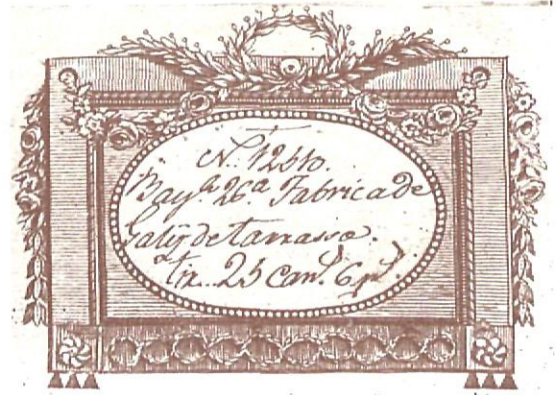 Nº 12610.
Bayª 26ª Fabrica de
Galíj de tarrassa.
tiª.. 25 canˢ 6 pˢ.